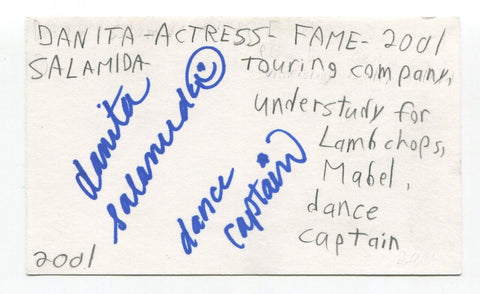 DANITA - ACTRESS - FAME - 2001
SALAMIDA
touring company,
understudy for
Lambchops,
Mabel,
dance
captain
danita
salamida
dance
captain
2001